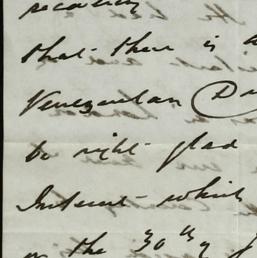 that there is a
Venezuelan
be right glad
Interest which
on the 30th